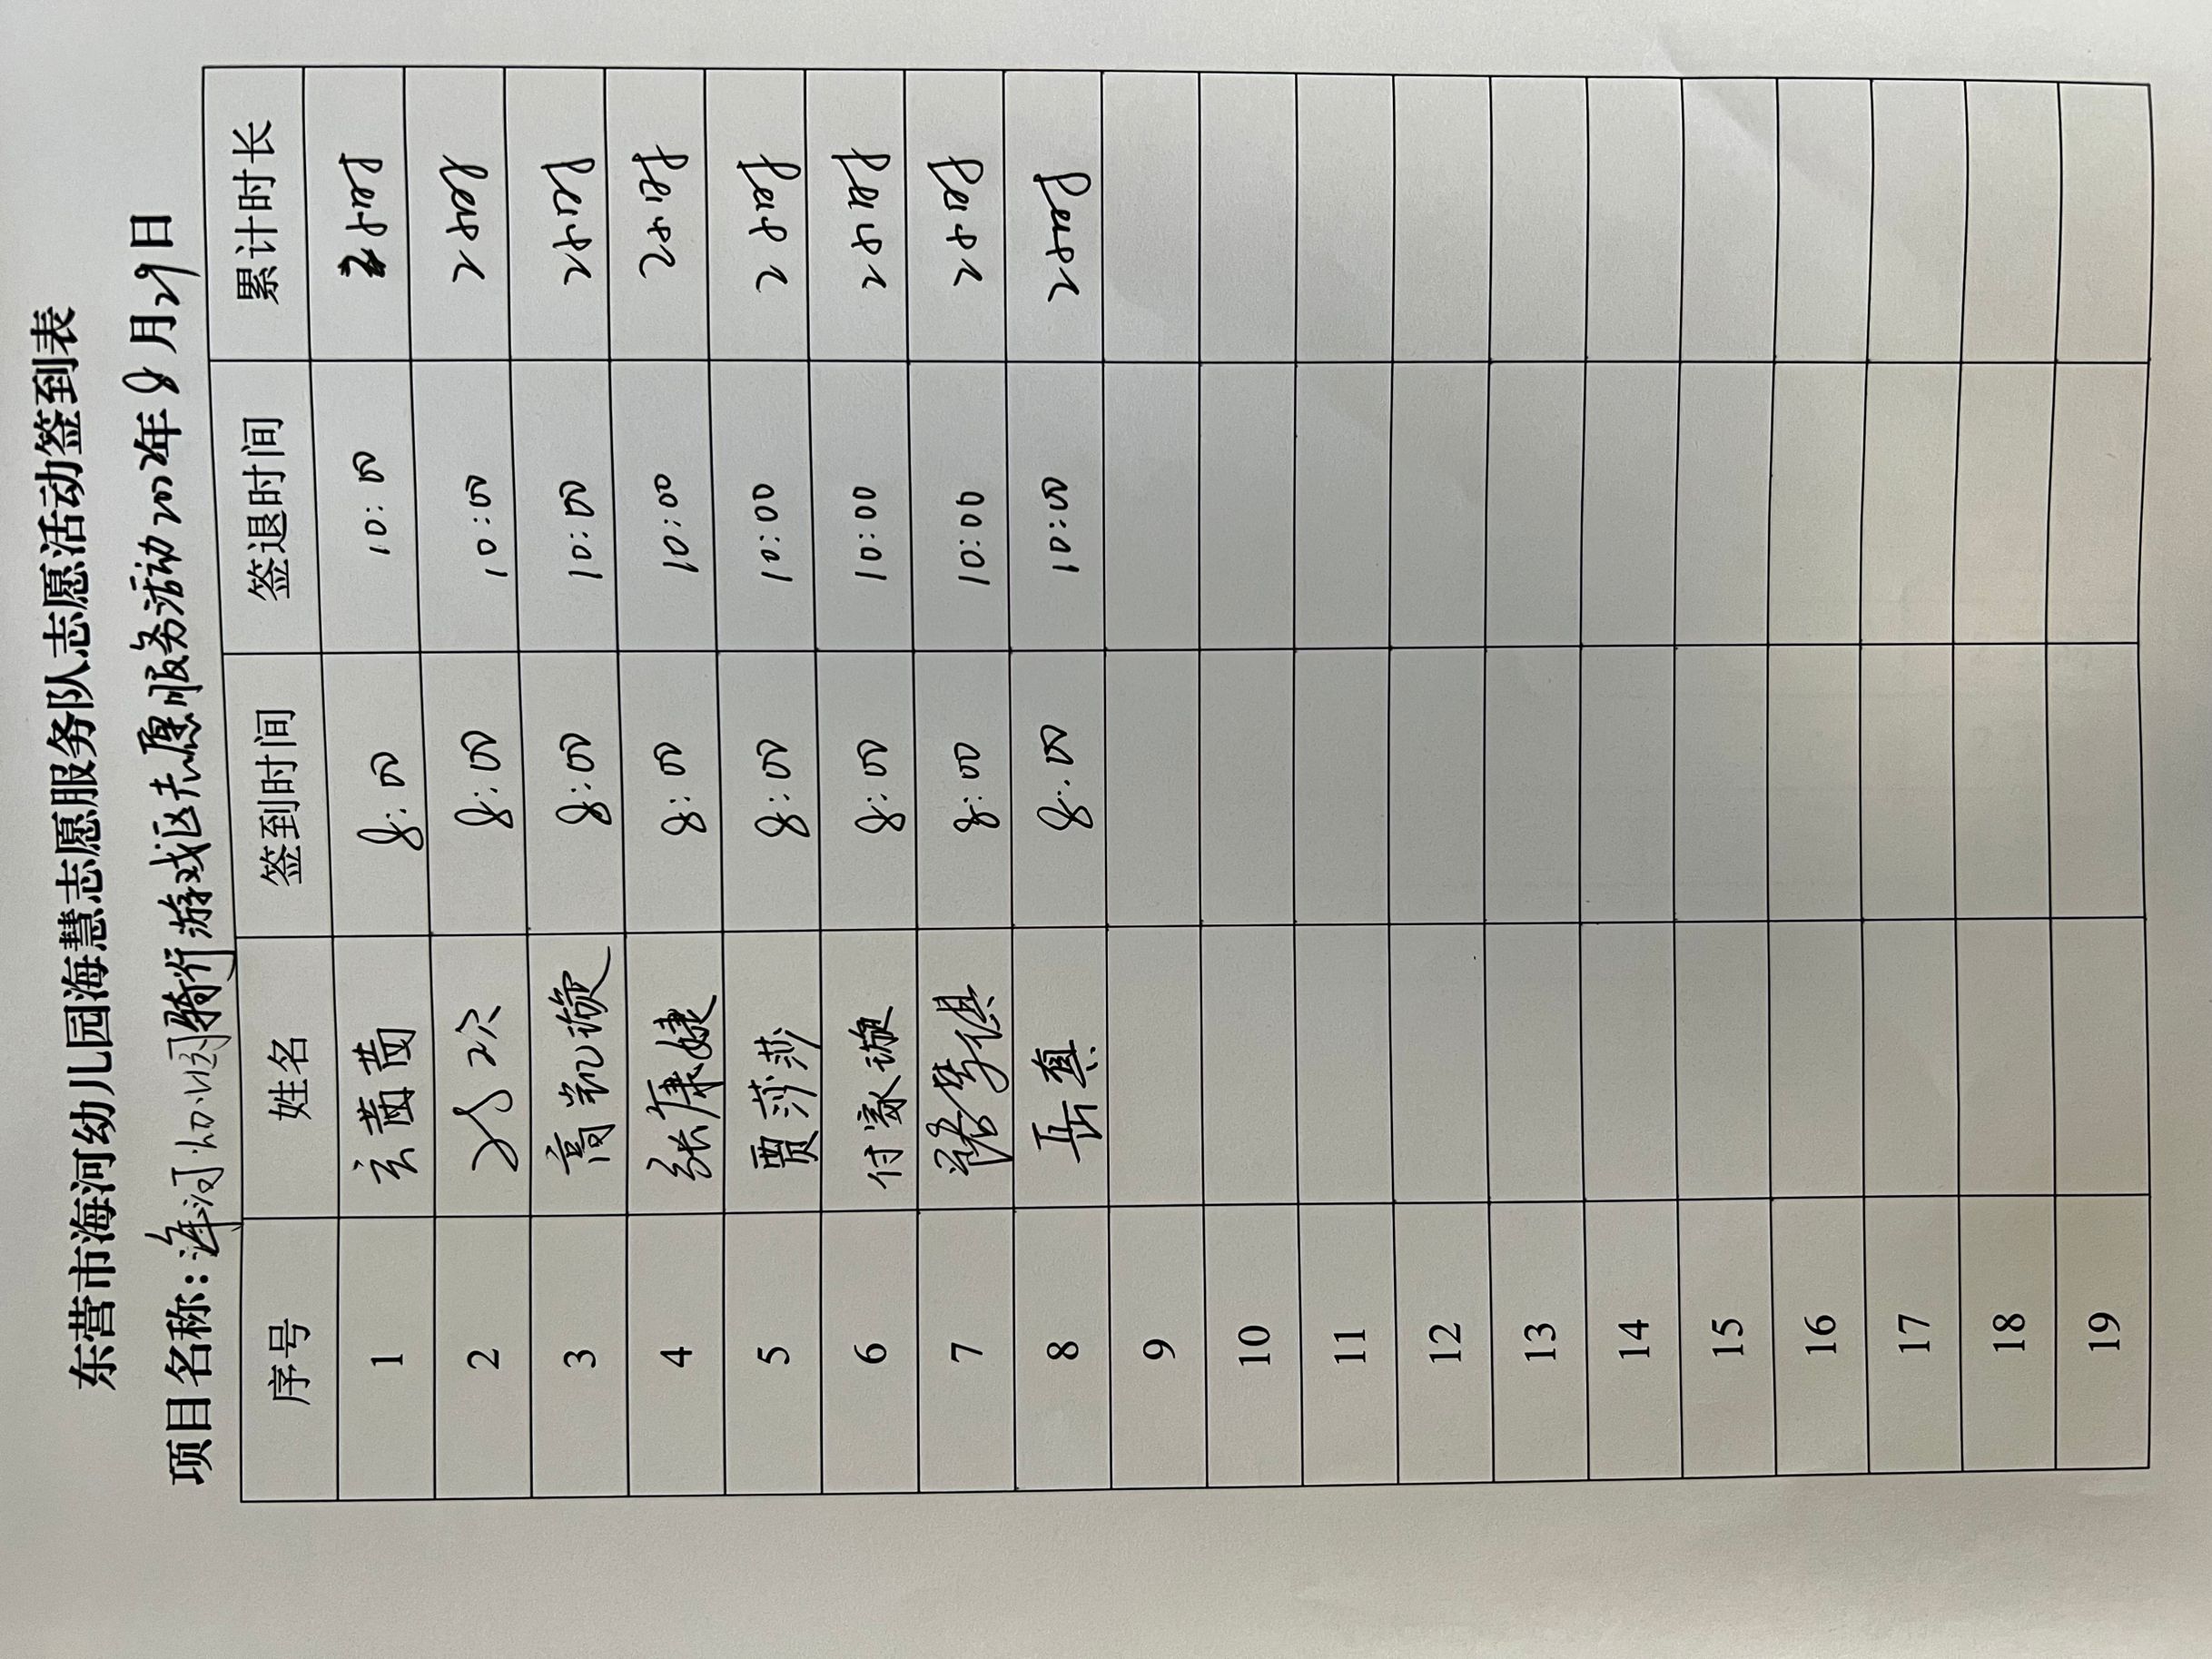 东营市海河幼儿园海慧志愿服务队志愿活动签到表
项目名称：海河幼儿园骑行游戏区志愿服务活动2022年8月29日
序号 姓名 签到时间 签退时间 累计时长
1 玄茜茜 8:00 10:00 2小时
2 8:00 10:00 2小时
3 高凯璇 8:00 10:00 2小时
4 张康婕 8:00 10:00 2小时
5 贾莎莎 8:00 10:00 2小时
6 付家璇 8:00 10:00 2小时
7 8:00 10:00 2小时
8 岳真 8:00 10:00 2小时
9
10
11
12
13
14
15
16
17
18
19